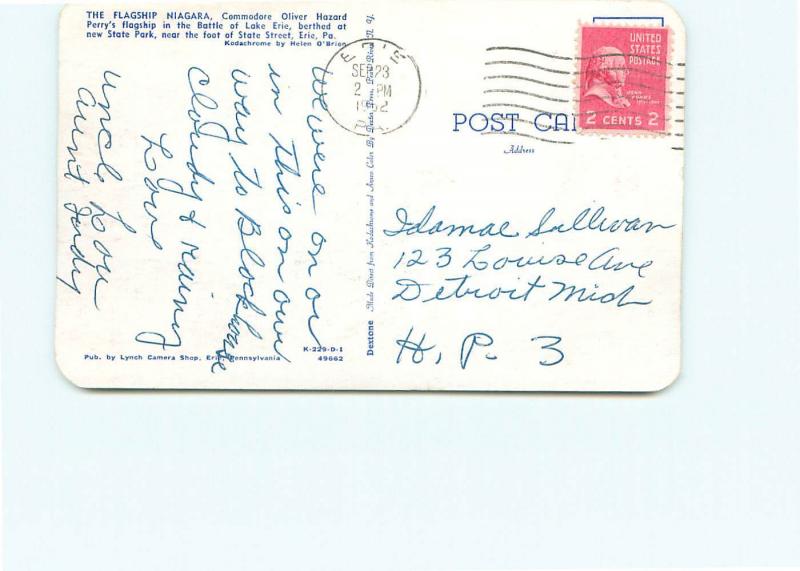 THE FLAGSHIP NIAGARA, Commodore Oliver Hazard
Perry's flagship in the Battle of Lake Erie, berthed at
new State Park, near the foot of State Street, Erie, Pa.
Kodachrome by Helen O'Brien
We were on or
in this on our
way to Blockhouse
Cloudy & raining
Love
Uncle Lou
Aunt
Pub. by Lynch Camera Shop, Erie, Pennsylvania
K-229-D-1
49662
Dextone Made Direct from Kodachrome and Ansco Color By Dexter Press, Pearl River, N. Y.
ERIE
SEP 23
2 PM
1952
PA.
UNITED
STATES
POSTAGE
JOHN ADAMS
2 CENTS 2
POST CAR
Address
Idamae Sullivan
123 Louise Ave
Detroit Mich
H. P. 3